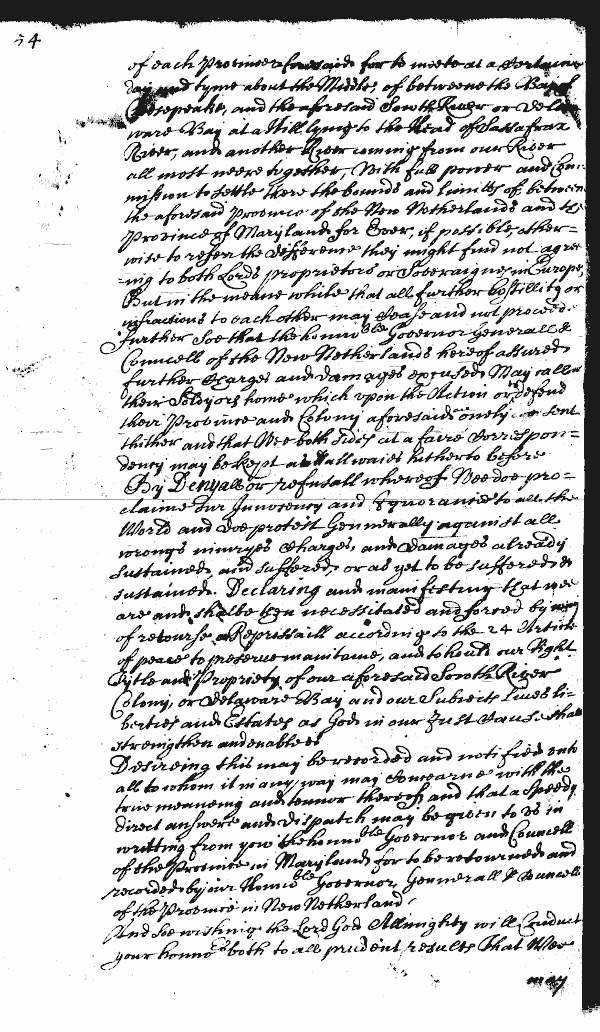 54
of each Province aforesaid for to meete at a Certaine
day and tyme about the Middle, of betweene the Bay of
Chesepeake, and the aforesaid South River or Dela
ware Bay at a Hill lying to the Head of Sassafrax
River, and another River coming from our River
all most neere together, With full power and Com=
mission to settle there the bounds and limitts of, between
the aforesaid Province of the New Netherlands and the
Province of Maryland, for Ever, if possible, other=
wise to referr the difference they might find not agree
=ing to both Lords proprietors or Soveraignes in Europe,
But in the meane while that all further hostillity or
infractions to each other may Cease and not proceed
further Soe that the honno:ble Governor Generall &
Councell of the New Netherlands hereof assured
further Charges and damages Excused, May call
their Soldyors home which upon the Action or defend
their Province and Colony aforesaid onely are sent
thither and that Wee both sides at a faire Correspon=
dency may be kept as allwaies hitherto before
By Denyall or refusall whereof Wee doe pro=
claime our Innocency and Ignorance to all the
World and doe protest Gennerally against all
wrongs injuryes Charges, and damages already
sustained, and suffered, or as yet to be suffered &
sustained. Declaring and manifesting that wee
are and shalbe then necessitated and forced by way
of recourse or Repressaill according to the 24 Article
of peace to preserve maintaine, and to hould our Right
Tytle and Propriety of our aforesaid South River
Colony, or Delaware Bay and our Subjects Lives li=
berties and Estates as God in our Just Cause shall
strengthen and enable us
Desireing this may be recorded and notified unto
all to whom it in any way may Concerne with the
true meaneing and tennor thereof, and that a speedy
direct answere and dispatch may be given to us in
writting from yow the honno:ble Governor and Councell
of the Province in Maryland, for to be retourned and
recorded by our Honno:ble Governor, Gennerall & Councell
of the Province in New Netherland,
And soe wishing the Lord God Allmighty will Conduct
your honno:rs both to all prudent results that Wee
may